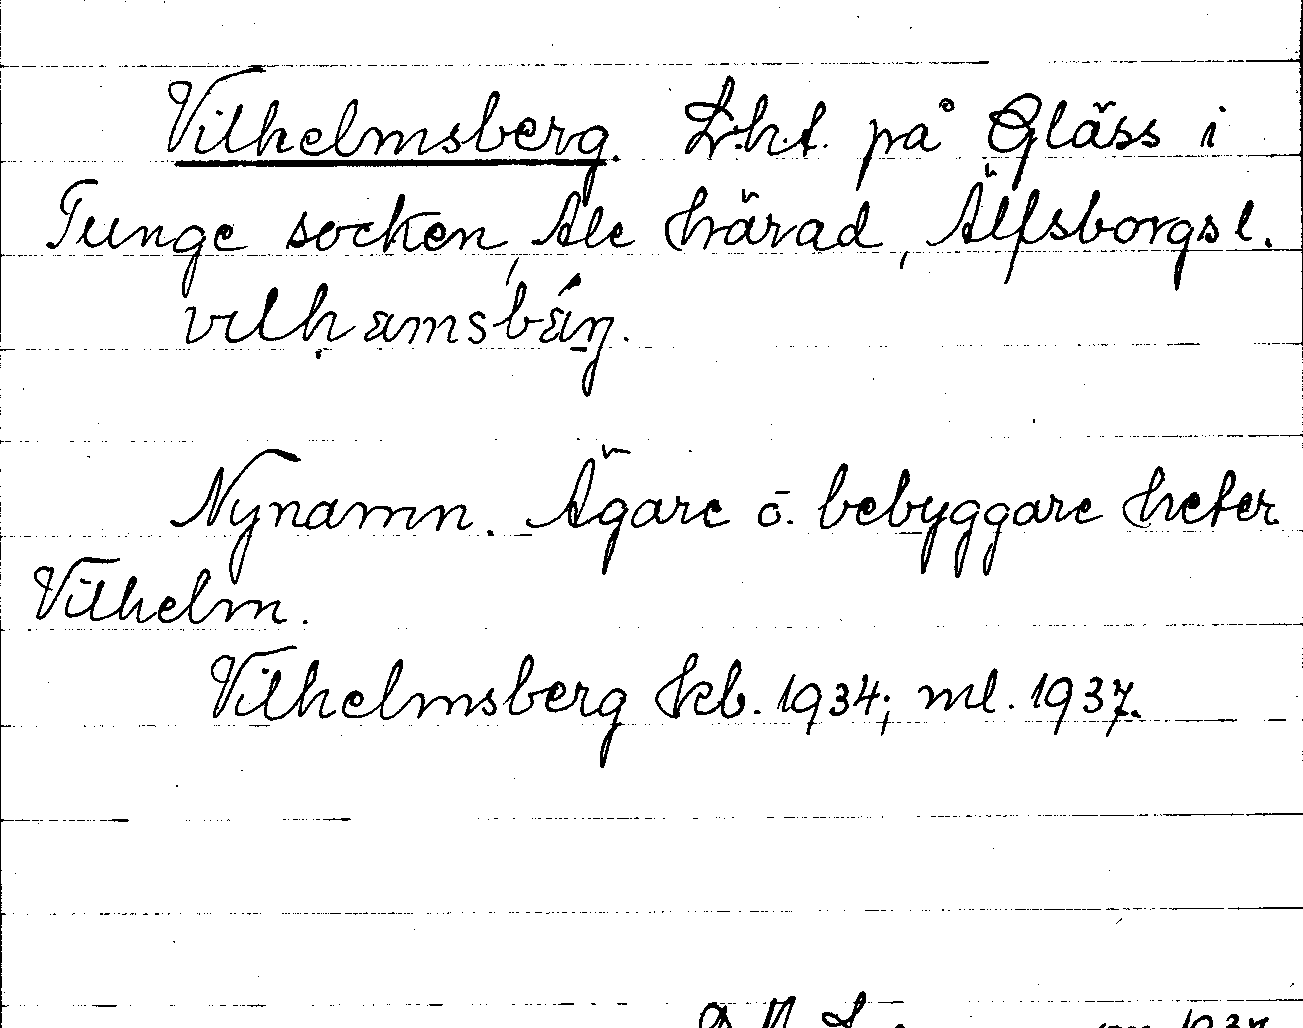 Vilhelmsberg. Lht. på Gläss i
Tunge socken, Ale härad, Älfsborgs l.
Nynamn. Ägare o. bebyggare heter
Vilhelm.
Vilhelmsberg kb. 1934; ml. 1937.